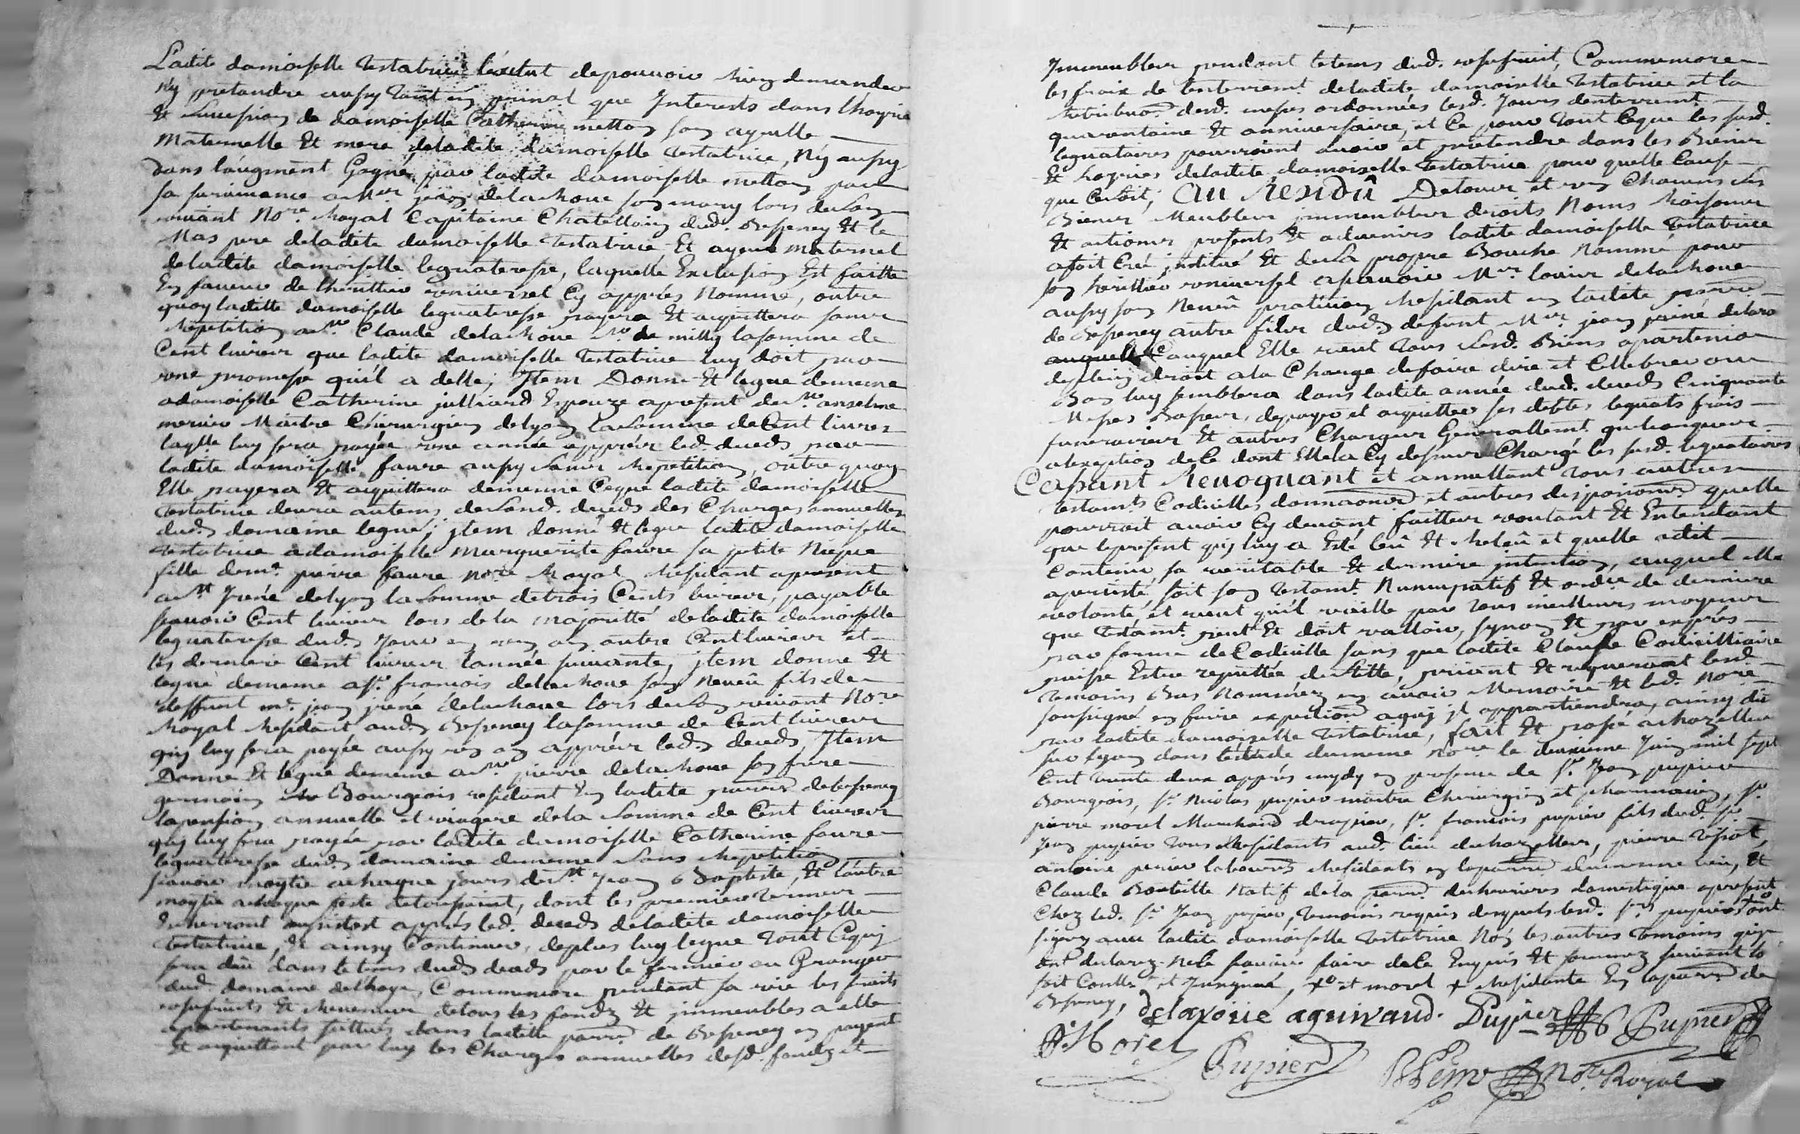 Ladite damoiselle testatrice depouvoir rien demander
ny pretandre aussy tant en prinal que Interests dans lhoyrie
Et succession de damoiselle Catherine metton son ayeulle
Maternelle Et mere deladite damoiselle testatrice, Ny aussy
Dans laugment Gagné par ladite damoiselle metton par
sa survivance a Mre jean delachoue son mary lors deson
vivant Nore Royal Capitaine Chatellain dud. Besseney Et le
Mas pere deladite damoiselle testatrice Et ayeul maternel
deladite damoiselle leguateresse, laquelle Exclusion Est faitte
En faveur de lherittier universel Cy apprés Nommé, outre
quoy laditte damoiselle leguateresse payera Et aiquittera sans
Repetition a Mre Claude delachoue Sr. de milly lasomme de
Cent livres que ladite damoiselle testatrice luy doit par
une promesse quil a delle; Item Donne Et legue dememe
adamoiselle Catherine julliard Espouze apresent de Mr anselme
merier Maitre Chirurgien delyon lasomme de Cent livres
laqlle luy sera payée une année apprés led. deceds par
ladite damoiselle faure aussy sans Repetition, outre quoy
Elle payera Et aiquittera dememe Ceque ladite damoiselle
testatrice devra autems deSond. deceds des Charges annuelles
dud. domaine legué; jtem donne Et legue ladite damoiselle
testatrice adamoiselle marguerite faure sa petite Niepce
fille demr. pierre faure Nore Royal Residant apresent
a St Irené delyon la somme detrois Cents livres, payable
scavoir Cent livres lors de la majoritté deladite damoiselle
leguateresse dud. jour en un an autre Cent livres et
les derniers Cent livres lannée suivante, jtem donne Et
legue dememe a Sr. francois delachoue son Neveu fils de
deffunt mr. jean jrené delachoue lors deson vivant Nore
Royal Residant aud. Bessenay lasomme de Cent livres
quy luy sera payée aussy un an apprés led. deceds, Item
Donne Et legue dememe a Mre pierre delachoue son frere
germain Bourgeois residant En ladite parroisse de Bessenay
lapension annuelle et viagere dela somme de Cent livres
quy luy sera payée par ladite damoiselle Catherine faure
leguateresse dud. domaine dememe Sans Repetition
scavoir moytie achaque jours de St jean Baptiste, Et lautre
moytie achaque feste detoussaint, dont les premiers termes
Echerront aussitost apprés led. deceds deladite damoiselle
testatrice, Et ainsy Continuer, deplus luy legue tout Cequy
sera dû dans letems dud. deceds par le fermier ou Granger
dud. domaine delhoye, Commencera pendant sa vie les fruits
usufruits Et Revenus detous les fonds Et jmmeubles a elle
apartenants sittués dans laditte parre. de Bessenay en payant
Et aiquittant par luy les Charges annuelles desd. fonds et
Jmmeubles pendant letems dud. usufruit, Commencera
les frais de lenterrement deladite damoiselle testatrice et la
retribuon. desd. messes ordonnées lesd. jours denterremt.
quarentaine Et anniversaire, et Ce pour tout Ceque les susd.
leguataires pourroient avoir et pretendre dans les Biens
Et hoyries deladite damoiselle testatrice pour quelle Cause
que Cesoit; Au Rendû Detous et uns Chacuns les
Biens Meubles jmmeubles droits Noms Raisons
Et actions presents Et advenirs ladite damoiselle testatrice
afait Créé jnstitué Et desa propre Bouche Nommé pour
son herittier universel ascavoir Mre louis delachoue
aussy son Neveû praticien Residant en ladite parre.
de Bessenay autre fils dud. deffunt Mre jean jrené delachoue
auquel Elle veut tous sesd. Biens apartenir
deplein droit ala Charge defaire dire et Cellebrer ou
Bon luy semblera dans ladite année dud. deceds Cinquante
Messes Basses, depayer et aiquitter ses debtes leguats frais
funeraires Et autres Charges Generallement quelconques
alexception dece dont Ellea Cy dessus Chargé les susd. leguataires
Cassant Revoquant et annullant tous autres
testamts. Codicilles donnaons. et autres disposions. quelle
pourroit avoir Cy devant faittes voulant Et Entendant
que lepresent quy luy a Esté leû Et Releû et quelle adit
Contenir sa veritable Et derniere intention, auquel elle
apersisté soit son testamt. Nuncupatif Et ordre de derniere
volonté, et veut quil vaille par tous meilleurs moyens
que testamt. peut Et doit valloir, synon Et par exprés
par forme de Codicille sans que ladite Clause Codicilliaire
puisse Estre reputtée destille, priant Et requerant lesd.
temoins Bas Nommez en avoir Memoire Et led. Nore
soussigné en faire expedition aquy jl appartiendra, ainsy dit
par ladite damoiselle testatrice, fait Et passé achazelles
sur lyon dans letude dumeme Nore le deuxieme Juin mil sept
Cent trente deux apprés mydy en presence de Sr. Jean pupier
Bourgeois, Sr. Nicolas pupier maitre Chirurgien et pharmacien, Sr.
pierre morel Marchand drapier, Sr. francois pupier fils dud. Sr.
Jean pupier tous Residants aud. lieu dechazelles, pierre
antoine perier laboureur Residants en laparre. dumeme lieu, Et
Claude Bouteille Natif dela parre. domestique apresent
Chez led. Sr. Jean pupier, temoins requis desquels lesd. Srs. pupier sont
signez avec ladite damoiselle testatrice Non les autres temoins quy
ont declarez Nele scavoir faire dece Enquis Et sommez suivant lo
soit Conllé et Insinué, X et morel X Residante En laparre. de
Bessenay,
delavoüe aquiraud. Pupier Pupier
P. Morel Pupier Nore Royal